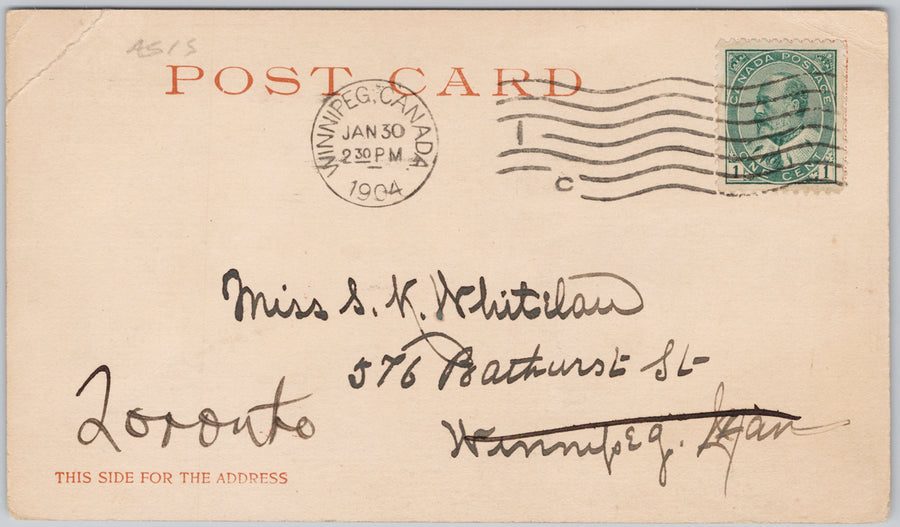 ASIS
POST CARD
WINNIPEG, CANADA.
JAN 30
2 30 PM
1904
1
C
CANADA POSTAGE
ONE CENT
1 1
Miss S. K. Whitelaw
576 Bathurst St
Winnipeg. Man
Toronto
THIS SIDE FOR THE ADDRESS